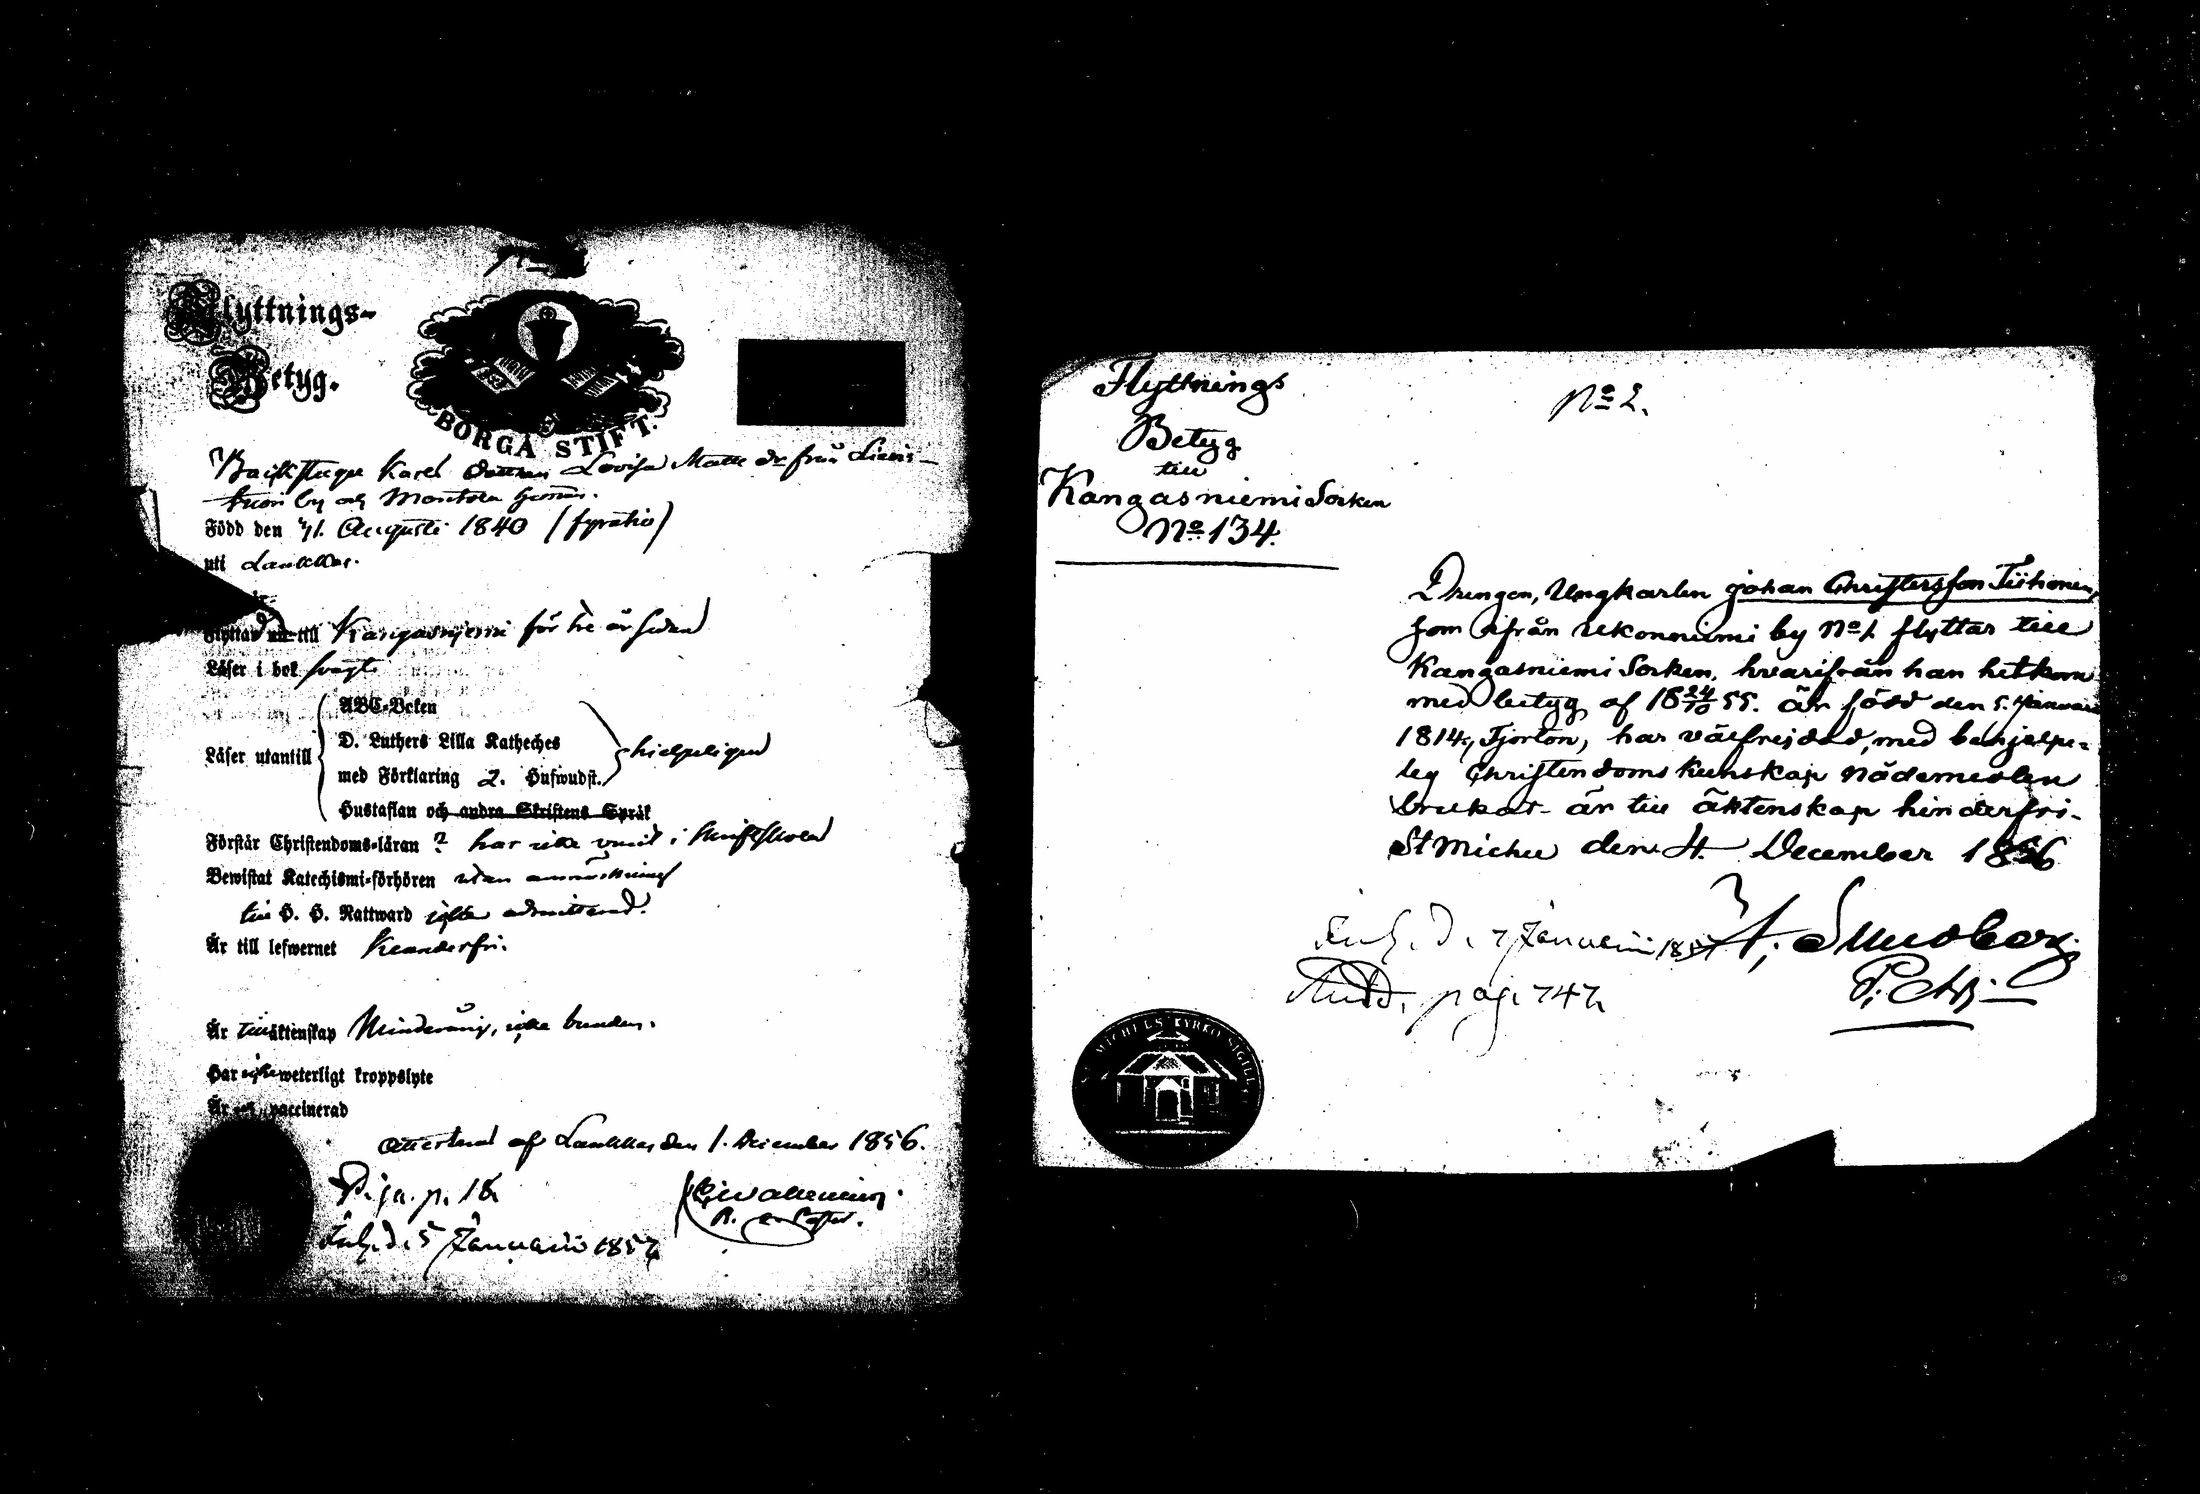 Flyttnings-
Betyg.
BORGÅ STIFT.
Karel Lovisa Matts dr från
by och Montola hemn.
Född den 7/1. Augusti 1840 (fyratio)
uti
Flyttad nu till Kangasnjemi för tre år sedan
Läser i bok svagt
ABC-Boken
Läser utantill D. Luthers Lilla Katheches hielpeligen
med Förklaring 2. Hufwudst.
Hustaflan och andra Skriftens Språk
Förstår Christendoms-läran ? har icke varit i Skriftskola
Bewistat Katechismi-förhören utan anmärkning
till H. H. Nattward icke admitterad.
Är till lefwernet klanderfri.
Är till äktenskap Minderårig, icke bunden.
Har icke weterligt kroppslyte
Är vaccinerad
Attesterad af den 1. December 1856.
Piga. p. 18
Inl. d. 5 Januarii 1857
Flyttnings
Betyg
till
Kangasniemi Socken
No 134.
No 2.
Drengen, Ungkarlen Johan Christersson Tiihonen,
som ifrån Ukonniemi by No 1. flyttar till
Kangasniemi Socken, hvarifrån han hitkom
med betyg af 18 24/10 55. är född den 5. Januarii
1814, Fjorton, har välfrejdad, med behjelpe-
lig Christendoms kunskap nådemedlen
brukat - är till äktenskap hinderfri -
St Michel den 4. December 1856
Inl. d. 7 Januarii 1857 A. Sundberg
pag. 747
ST MICHELS KYRKO SIGILL